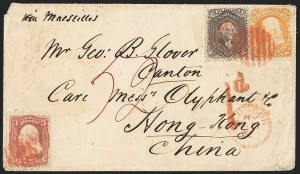 via Marseilles
Mr Geo: B. Glover
Canton
Care Messrs Olyphant & Co
Hong-Kong
China